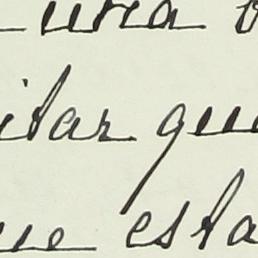 una
itar que
ue esta